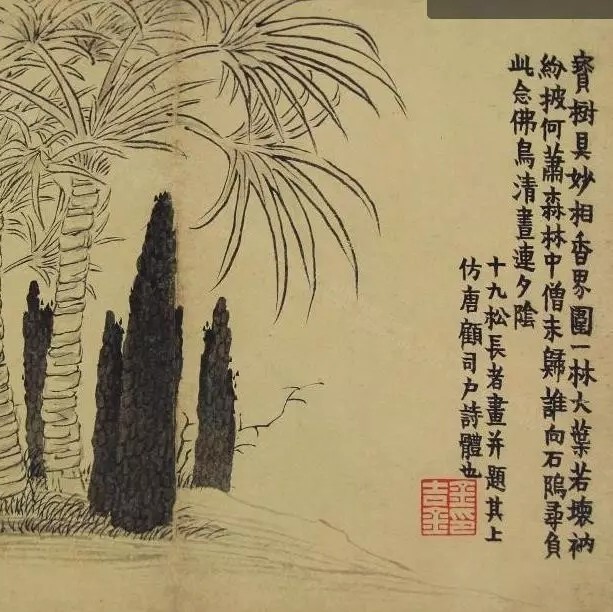 寶樹具妙相香界圍一林大葉若壞衲
紛披何蕭森林中僧未歸誰向石隝尋負
此念佛鳥清晝連夕陰
十九松長者畫并題其上
仿唐顧司戶詩體也
金吉金印